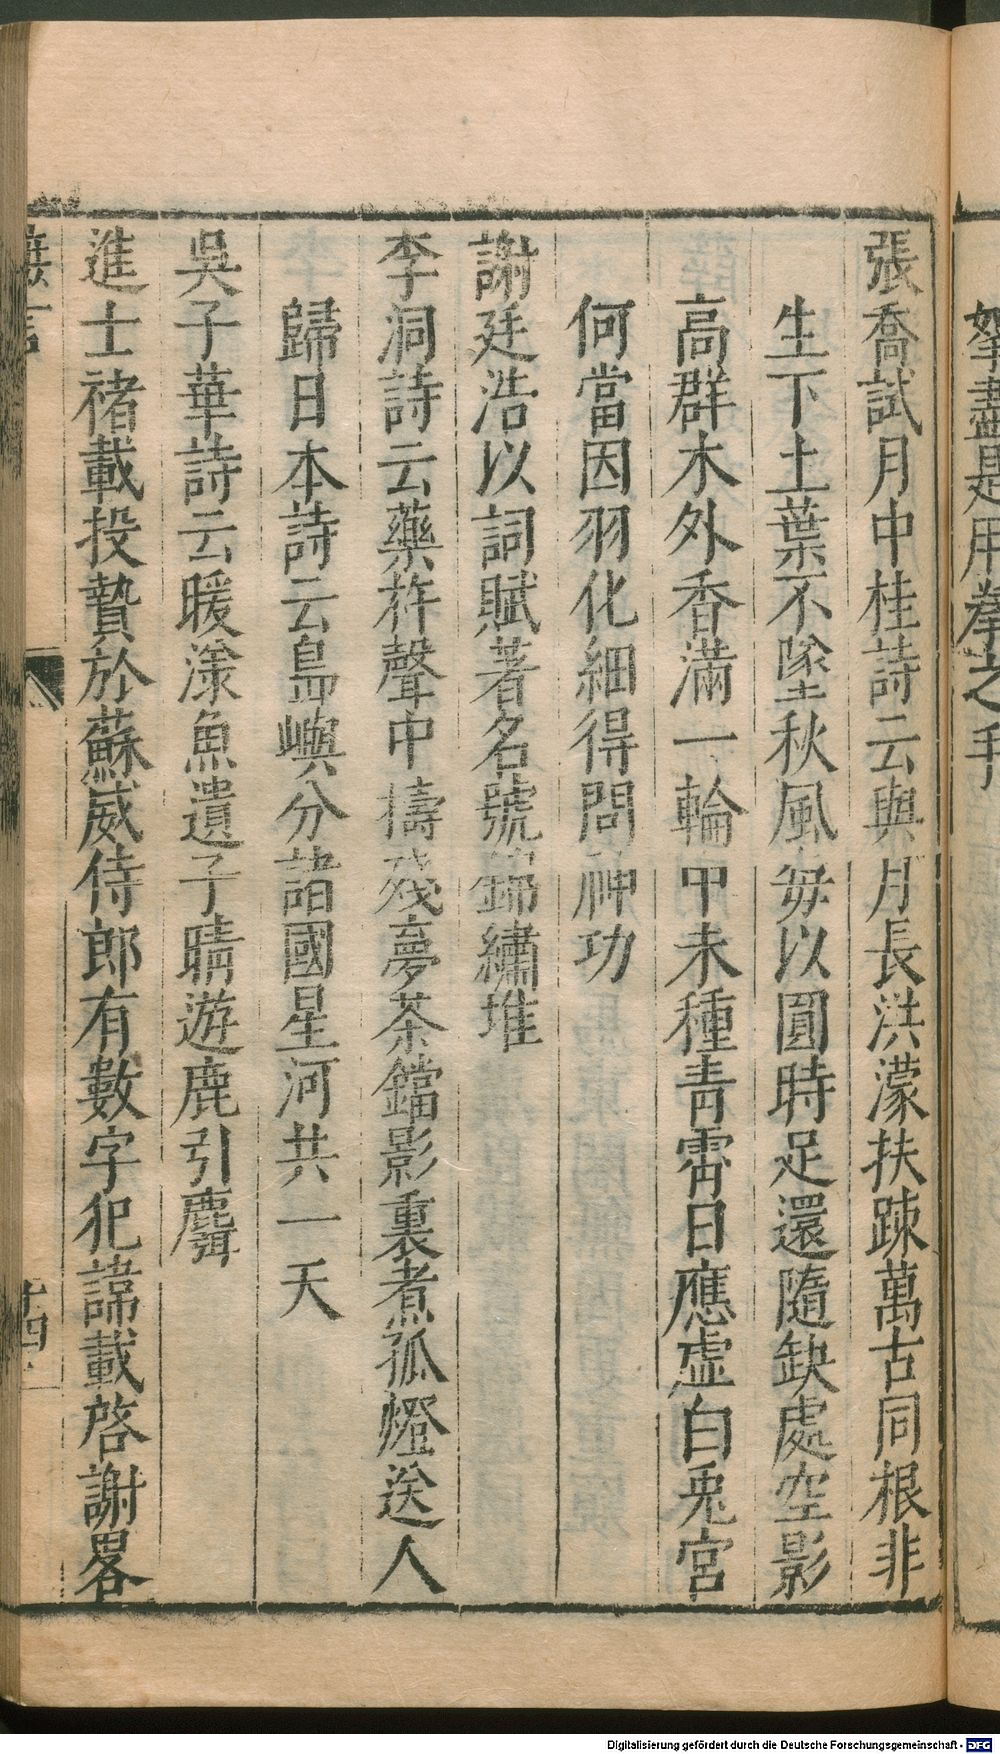 拏盡是用拳之手
張喬試月中桂詩云與月長洪濛扶踈萬古同根非
生下土葉不墜秋風每以圓時足還隨缺處空影
高群木外香滿一輪中未種青霄日應虛白兎宮
何當因羽化細得問神功
謝廷浩以詞賦著名號錦繡堆
李洞詩云藥杵聲中擣殘夢茶鐺影裏煮孤燈送人
歸日本詩云島嶼分諸國星河共一天
吳子華詩云暖漾魚遺子晴遊鹿引麛
進士褚載投贄於蘇威侍郎有數字犯諱載啓謝畧
十四
Digitalisierung gefördert durch die Deutsche Forschungsgemeinschaft - DFG